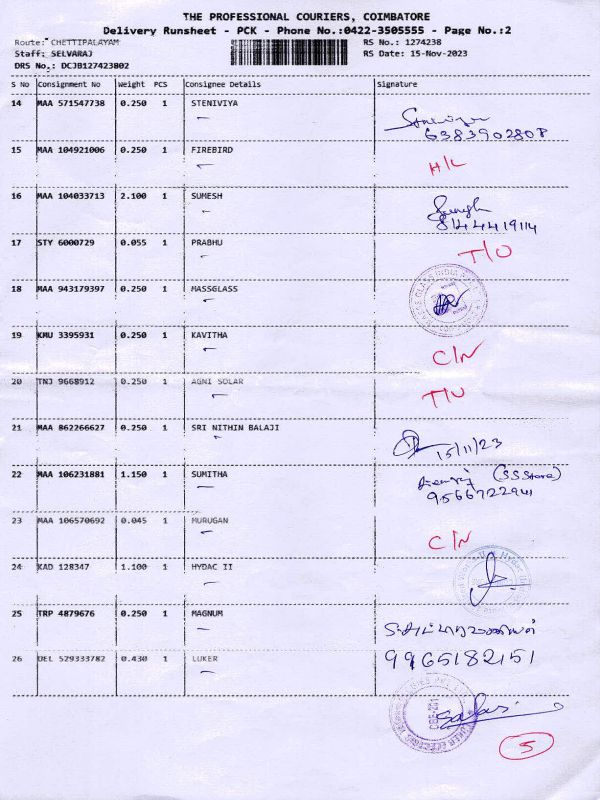 THE PROFESSIONAL COURIERS, COIMBATORE
Delivery Runsheet - PCK - Phone No.:0422-3505555 - Page No.:2
Route: CHETTIPALAYAM RS No.: 1274238
Staff: SELVARAJ RS Date: 15-Nov-2023
DRS No.: DCJB127423802
S No Consignment No Weight PCS Consignee Details Signature
14 MAA 571547738 0.250 1 STENIVIYA
6383902808
15 MAA 104921006 0.250 1 FIREBIRD H/L
16 MAA 104033713 2.100 1 SUMESH
8144419114
17 STY 6000729 0.055 1 PRABHU T/O
18 MAA 943179397 0.250 1 MASSGLASS
19 KMU 3395931 0.250 1 KAVITHA C/N
20 TNJ 9668912 0.250 1 AGNI SOLAR T/O
21 MAA 862266627 0.250 1 SRI NITHIN BALAJI 15/11/23
22 MAA 106231881 1.150 1 SUMITHA (SS Store)
9566722941
23 MAA 106570692 0.045 1 MURUGAN C/N
24 KAD 128347 1.100 1 HYDAC II
25 TRP 4879676 0.250 1 MAGNUM
26 DEL 529333782 0.430 1 LUKER 9965182151
5